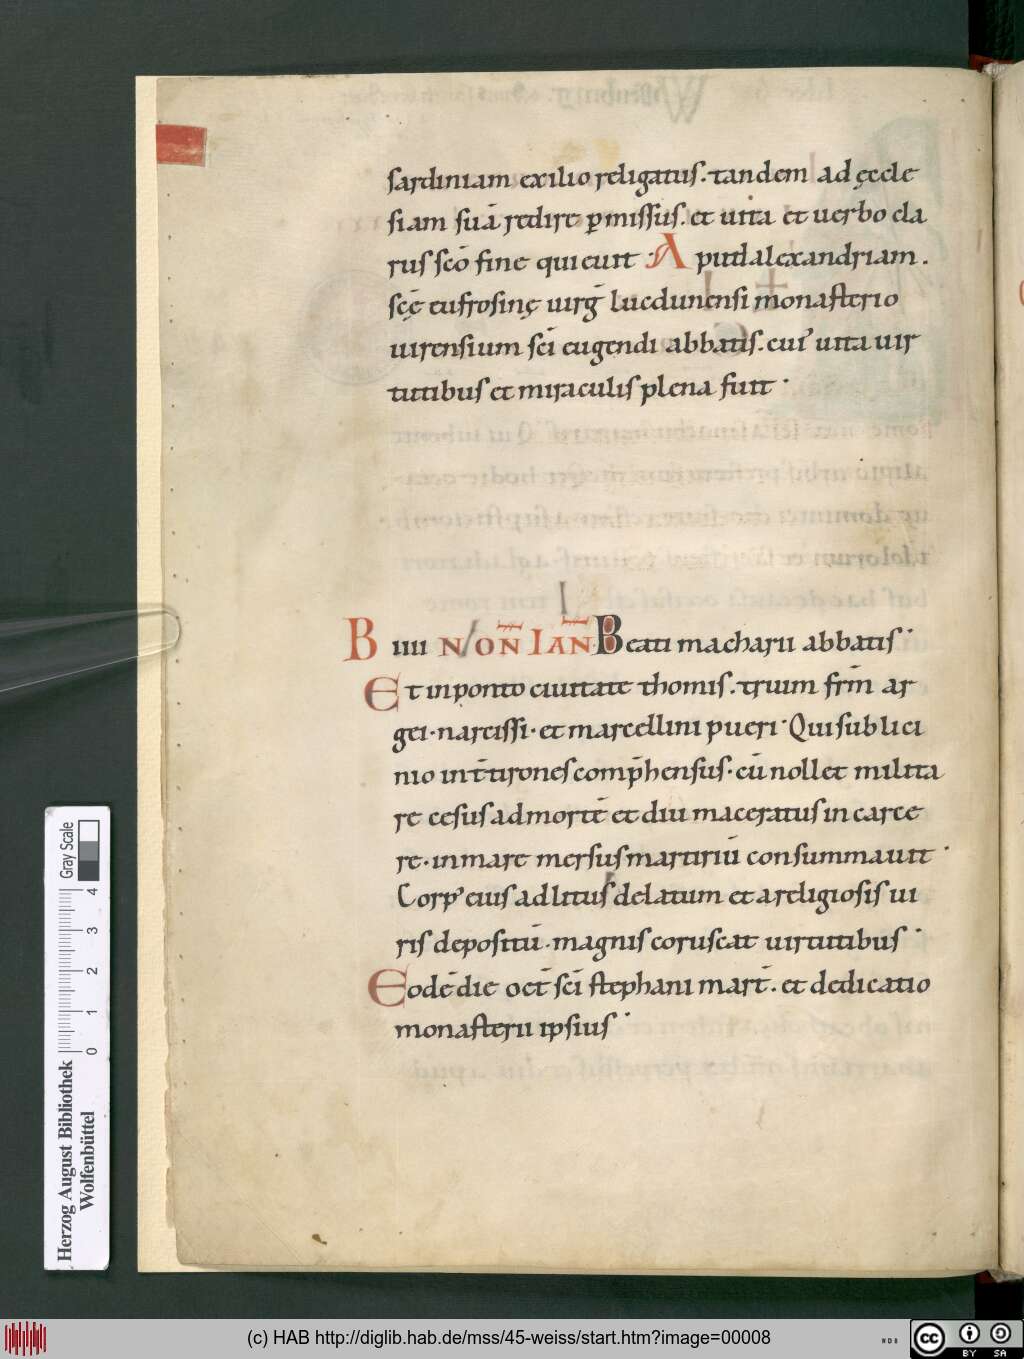 sardiniam exilio religatus. tandem ad ęccle
siam suā redire p̲missus. et uita et uerbo cla
rus scō fine quieuit. Apud alexandriam.
scę̄ eufrosinę uirḡ lucdunensi monasterio
uirensium sci̅ eugendi abbatis. cui᾿ uita uir
tutibus et miraculis plena fuit.
B IIII NON̄ IAN̄ Beati macharii abbatis.
Et in ponto ciuitate thomis. trium frm̄ ar
gei. narcissi. et marcellini pueri. Qui sub lici
nio int̄ tirones comp̄hensus. cū nollet milita
re cesus ad mortē et diu maceratus in carce
re. in mare mersus martiriū consummauit.
Corp᾿ eius ad litus delatum et a religiosis ui
ris depositū. magnis coruscat uirtutibus.
Eodē die oct̄ sci̅ stephani mart̄. et dedicatio
monasterii ipsius.
Herzog August Bibliothek
Wolfenbüttel
0 1 2 3 4
Gray Scale
(c) HAB http://diglib.hab.de/mss/45-weiss/start.htm?image=00008
cc BY SA